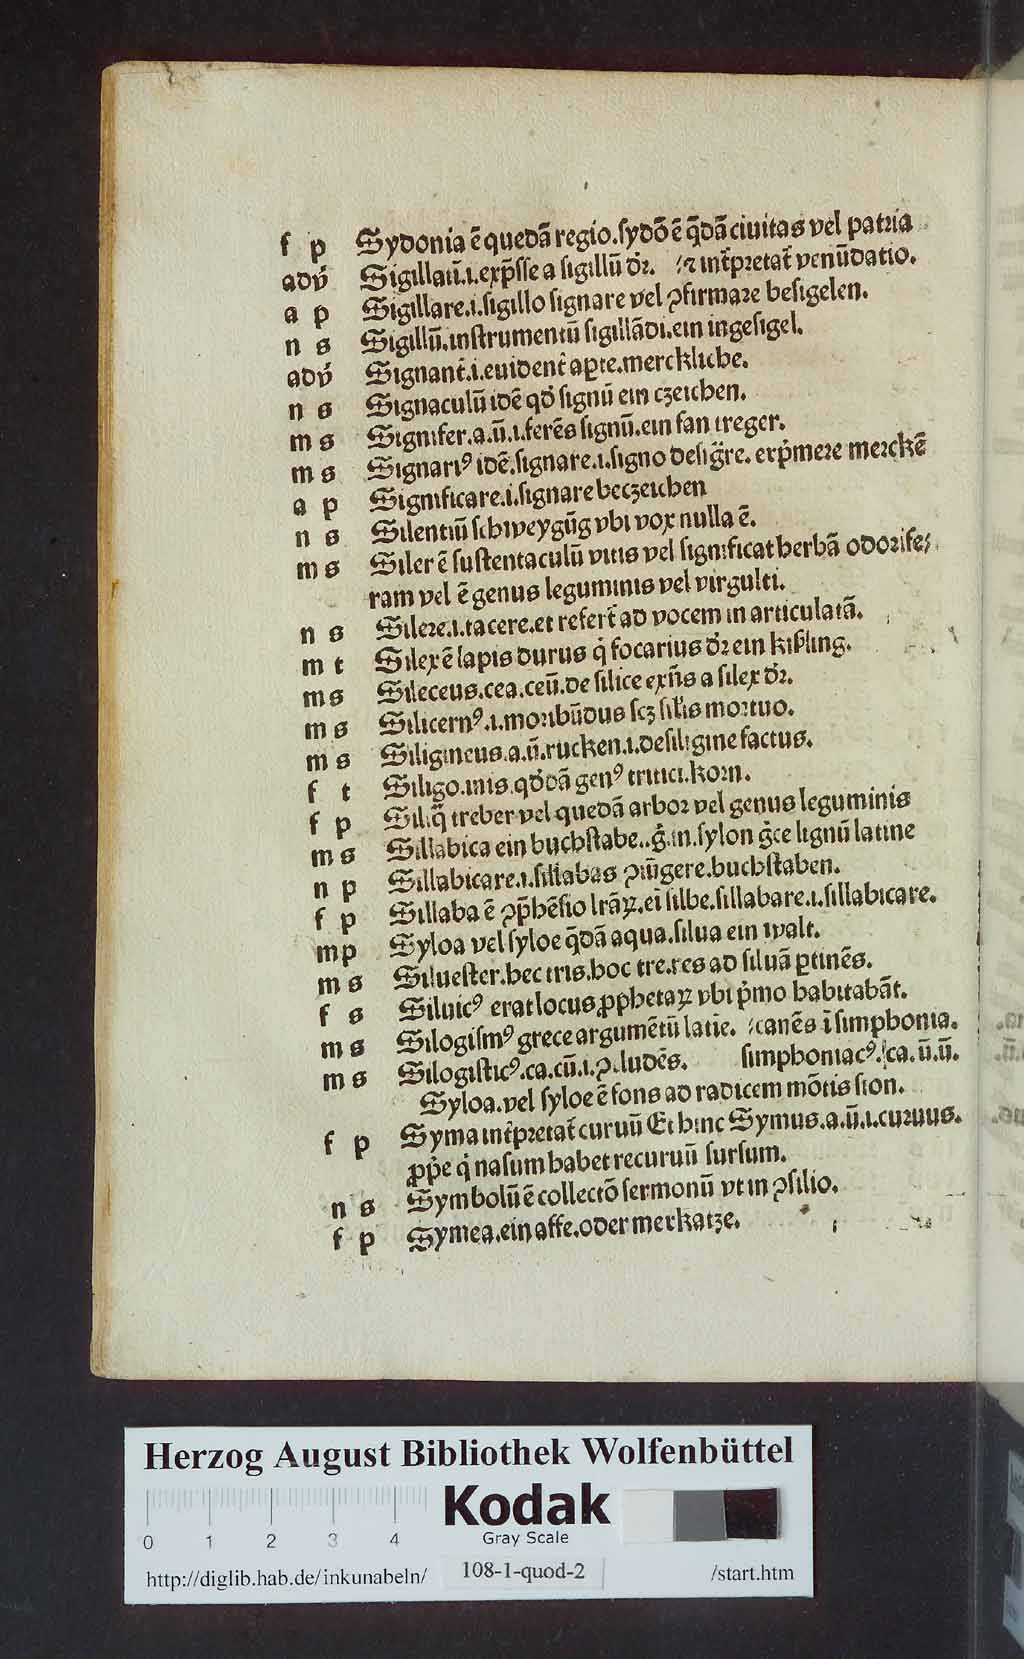 f p Sydonia ē quedā regio.sydō ē q̄dā ciuitas vel patria
adv̓ Sigillatī.i.exp̄sse a sigillū dr̄. et int̓pretat̓ venūdatio.
a p Sigillare.i.sigillo signare vel ꝯfirmare besigelen.
n s Sigillū.instrumentū sigillādi.ein ingesigel.
adv̓ Signant̓.i.euident̓ apte.merckliche.
n s Signaculū idē qd̓ signū ein czeichen.
m s Signifer.a.ū.i.ferēs signū.ein fan treger.
m s Signariꝰ idē.signare.i.signo desig̅re. exp̓mere merckē
a p Significare.i.signare beczeichen
n s Silentiū schweygūg vbi vox nulla ē.
m s Siler ē sustentaculū vitis vel significat herbā odorife⸗
ram vel ē genus leguminis vel virgulti.
n s Silere.i.tacere.et refert̓ ad vocem in articulatā.
m t Silex ē lapis durus q̓ focarius dr̄ ein kißling.
m s Sileceus.cea.ceū.de silice exn̄s a silex dr̄.
m s Silicernꝰ.i.moribūdus scꝫ sil̓is mortuo.
m s Siligineus.a.ū.rucken.i.de siligine factus.
f t Siligo.inis.qd̓dā genꝰ tritici.korn.
f p Siliq̄ treber vel quedā arbor vel genus leguminis
m s Sillabica ein buchstabe..g̓.in.sylon g̓ce lignū latine
n p Sillabicare.i.sillabas ꝯiūgere.buchstaben.
f p Sillaba ē ꝯp̄hēsio lr̄aꝝ.ei silbe.sillabare.i.sillabicare.
m p Syloa vel syloe q̄dā aqua.silua ein walt.
m s Siluester.hec tris.hoc tre.res ad siluā ꝑtinēs.
f s Siluicꝰ erat locus ꝓphetaꝝ vbi p̓mo habitabāt.
m s Silogismꝰ grece argumētū latie. canēs ī simphonia.
m s Silogisticꝰ.ca.cū.i.ꝯludēs. simphoniacꝰ.ca.ū.ū.
Syloa.vel syloe ē fons ad radicem mōtis sion.
f p Syma int̓pretat̓ curuū Et hinc Symus.a.ū.i.curuus.
ꝓp̓e q̓ nasum habet recuruū sursum.
n s Symbolū ē collectō sermonū vt in ꝯsilio.
f p Symea.ein affe.oder merkatze.
Herzog August Bibliothek Wolfenbüttel
Kodak
Gray Scale
0 1 2 3 4
http://diglib.hab.de/inkunabeln/ 108-1-quod-2 /start.htm